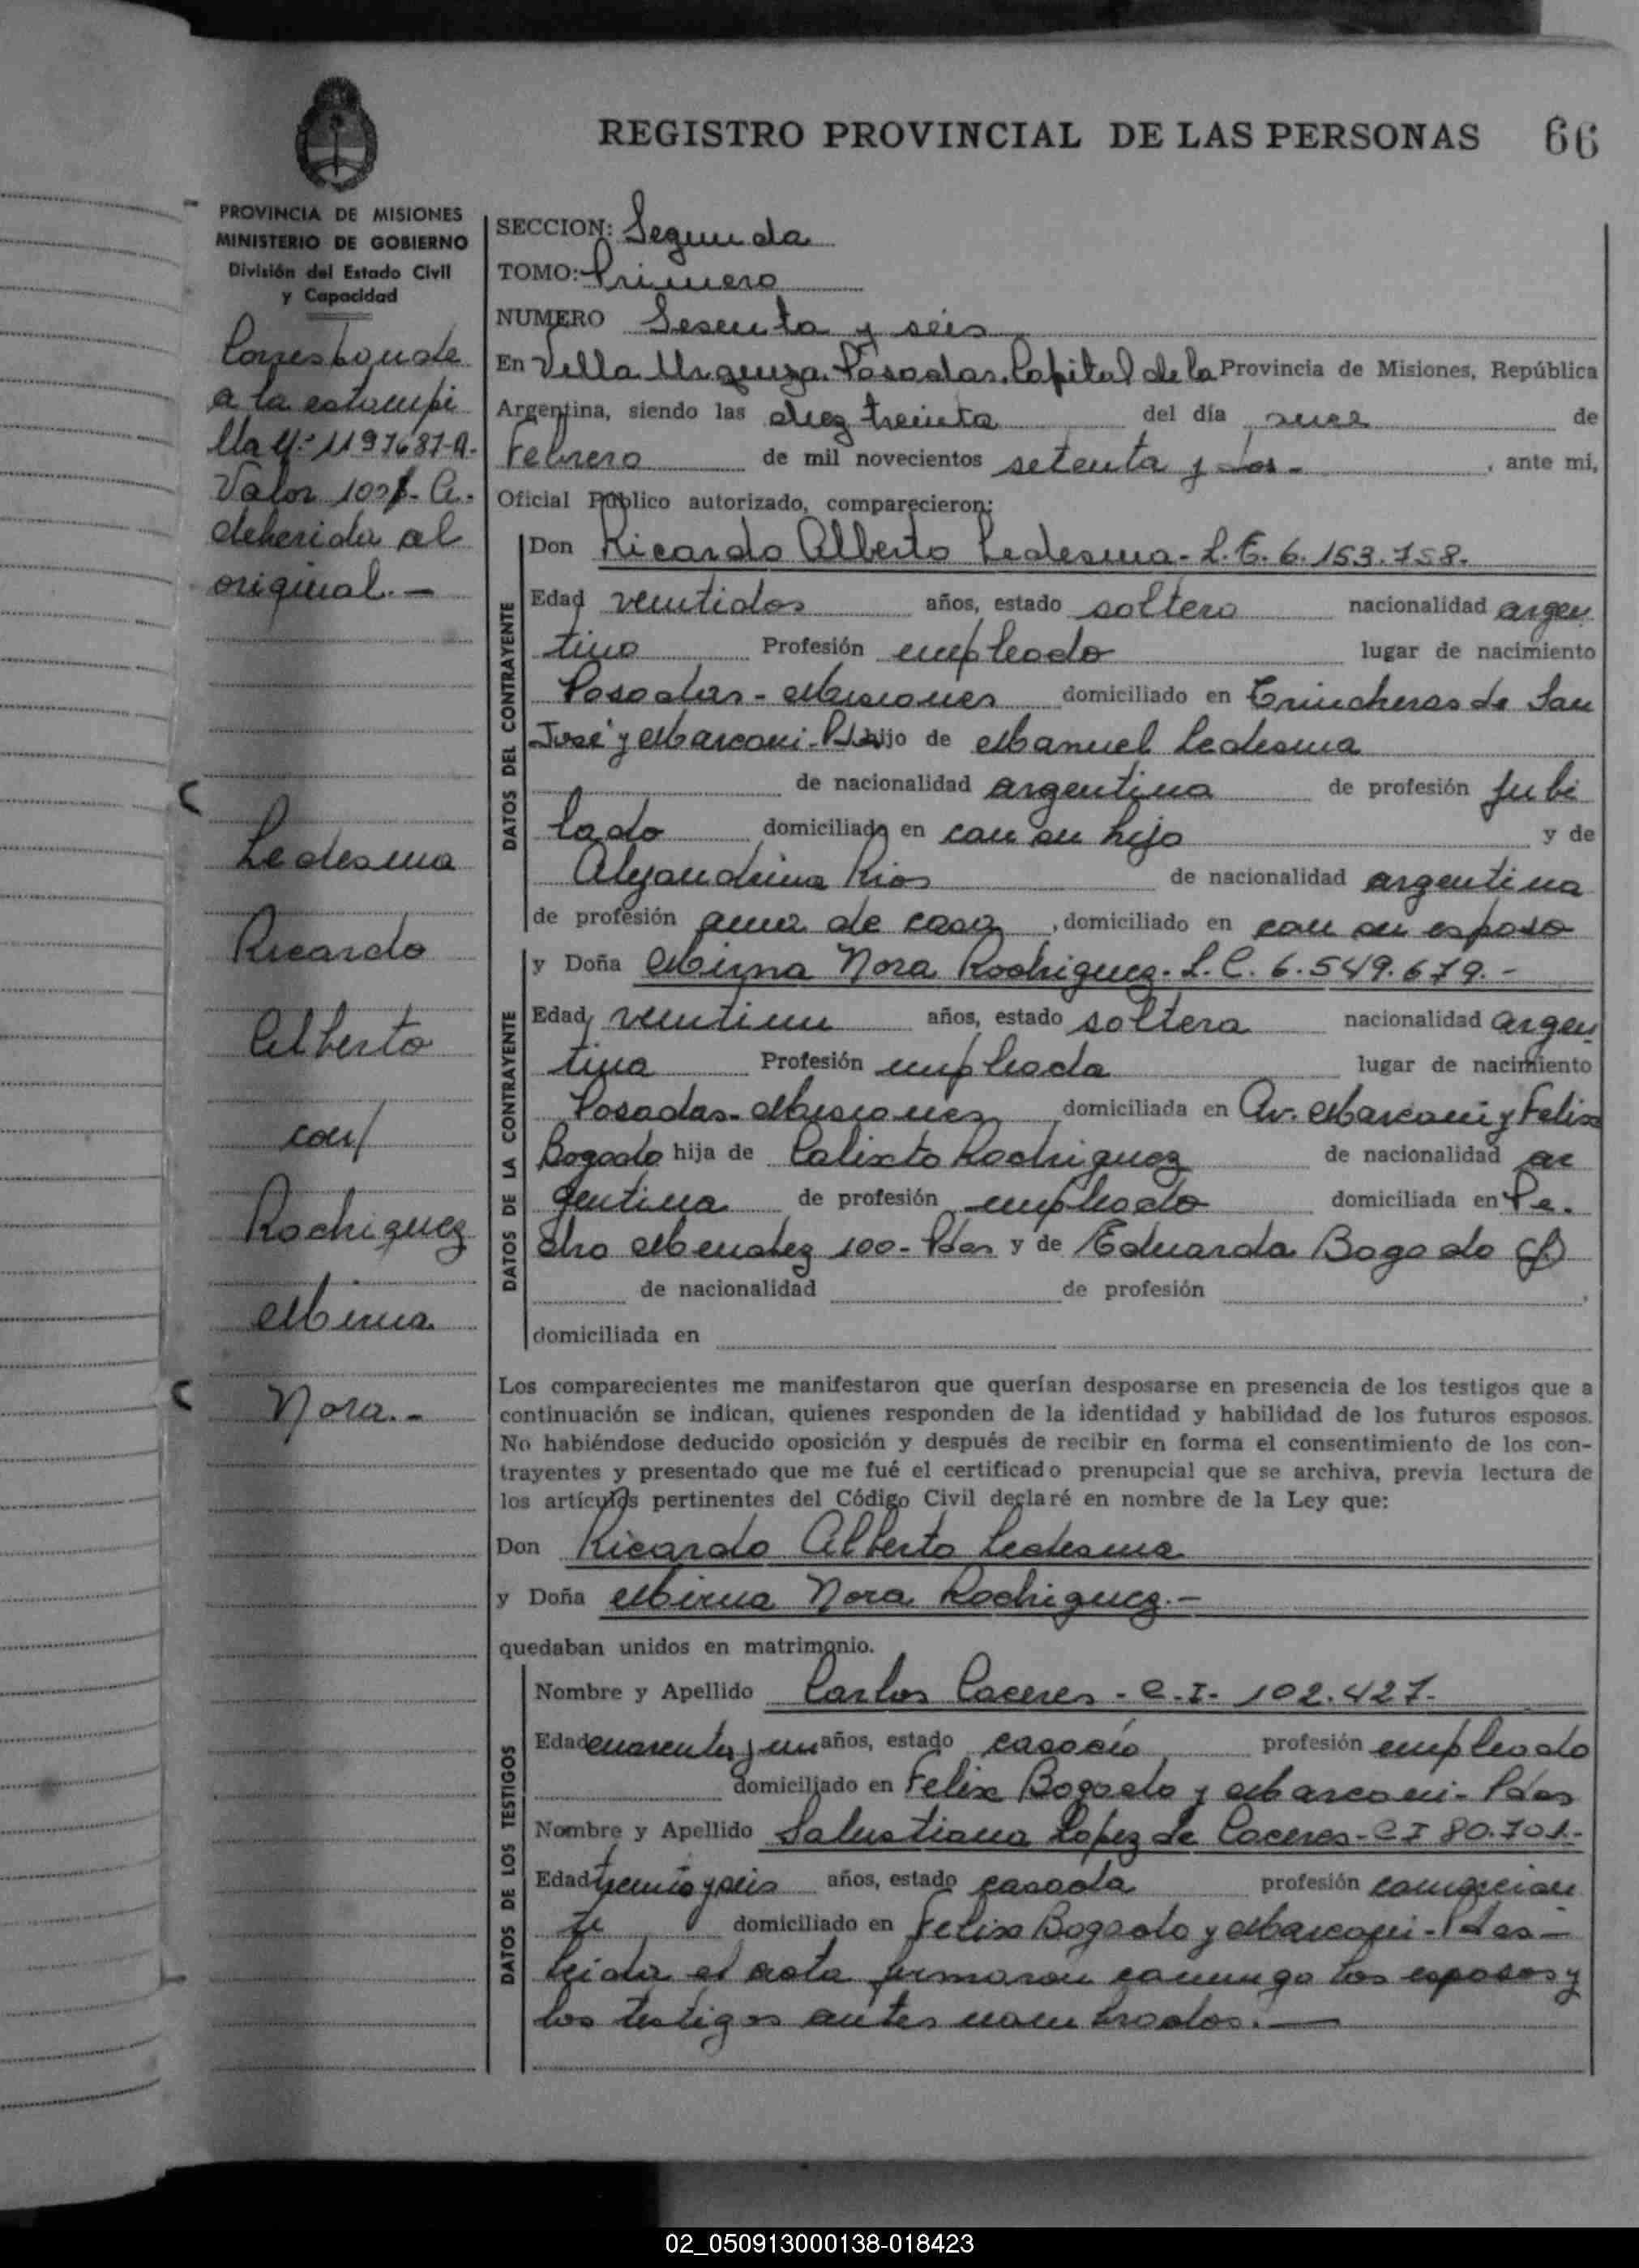 REGISTRO PROVINCIAL DE LAS PERSONAS 66
PROVINCIA DE MISIONES
MINISTERIO DE GOBIERNO
División del Estado Civil
y Capacidad
Corresponde
a la estampi
lla Nº 1197687-A.
Valor 100$. A.
deherida al
original.-
Ledesma
Ricardo
Alberto
con/
Rodriguez
Mirna
Nora.-
SECCION: Segunda
TOMO: Primero
NUMERO Sesenta y seis
En Villa Urquiza. Posadas. Capital de la Provincia de Misiones, República
Argentina, siendo las diez treinta del día once de
Febrero de mil novecientos setenta y dos.- , ante mi,
Oficial Público autorizado, comparecieron:
DATOS DEL CONTRAYENTE
Don Ricardo Alberto Ledesma - L.E. 6.153.758.
Edad veintidos años, estado soltero nacionalidad argen
tino Profesión empleado lugar de nacimiento
Posadas - Misiones domiciliado en Trincheras de San
José y Marconi - Pdas hijo de Manuel Ledesma
de nacionalidad argentina de profesión Jubi
lado domiciliado en con su hijo y de
Alejandrina Rios de nacionalidad argentina
de profesión ama de casa , domiciliado en con su esposo
DATOS DE LA CONTRAYENTE
y Doña Mirna Nora Rodriguez - L.C. 6.549.679.-
Edad veintiun años, estado soltera nacionalidad argen
tina Profesión empleada lugar de nacimiento
Posadas - Misiones domiciliada en Av. Marconi y Felix
Bogado hija de Calixto Rodriguez de nacionalidad ar
gentina de profesión empleado domiciliada en Pe.
dro Mendez 100 - Pdas y de Eduarda Bogado
de nacionalidad de profesión ,
domiciliada en
Los comparecientes me manifestaron que querían desposarse en presencia de los testigos que a
continuación se indican, quienes responden de la identidad y habilidad de los futuros esposos.
No habiéndose deducido oposición y después de recibir en forma el consentimiento de los con-
trayentes y presentado que me fué el certificado prenupcial que se archiva, previa lectura de
los artículos pertinentes del Código Civil declaré en nombre de la Ley que:
Don Ricardo Alberto Ledesma
y Doña Mirna Nora Rodriguez.-
quedaban unidos en matrimonio.
DATOS DE LOS TESTIGOS
Nombre y Apellido Carlos Caceres - C.I. 102.427.
Edad cuarenta y un años, estado casado profesión empleado
domiciliado en Felix Bogado y Marconi - Pdas
Nombre y Apellido Salustiana Lopez de Caceres - CI 80.701.
Edad treinta y seis años, estado casada profesión comercian
te domiciliado en Felix Bogado y Marconi - Pdas -
Leida el acta firmaron conmigo los esposos y
los testigos antes nombrados.-
02_050913000138-018423